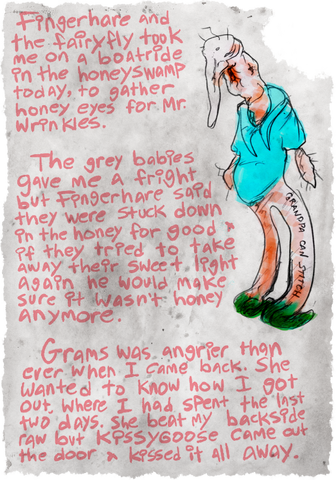 Fingerhare and
the fairyfly took
me on a boatride
in the honeyswamp
today, to gather
honey eyes for Mr.
Wrinkles.
The grey babies
gave me a fright
but Fingerhare said
they were stuck down
in the honey for good &
if they tried to take
away their sweet light
again he would make
sure it wasn't honey
anymore.
GRANDPA CAN STITCH
Grams was angrier than
ever when I came back. She
wanted to know how I got
out, where I had spent the last
two days. She beat my backside
raw but Kissygoose came out
the door & kissed it all away.